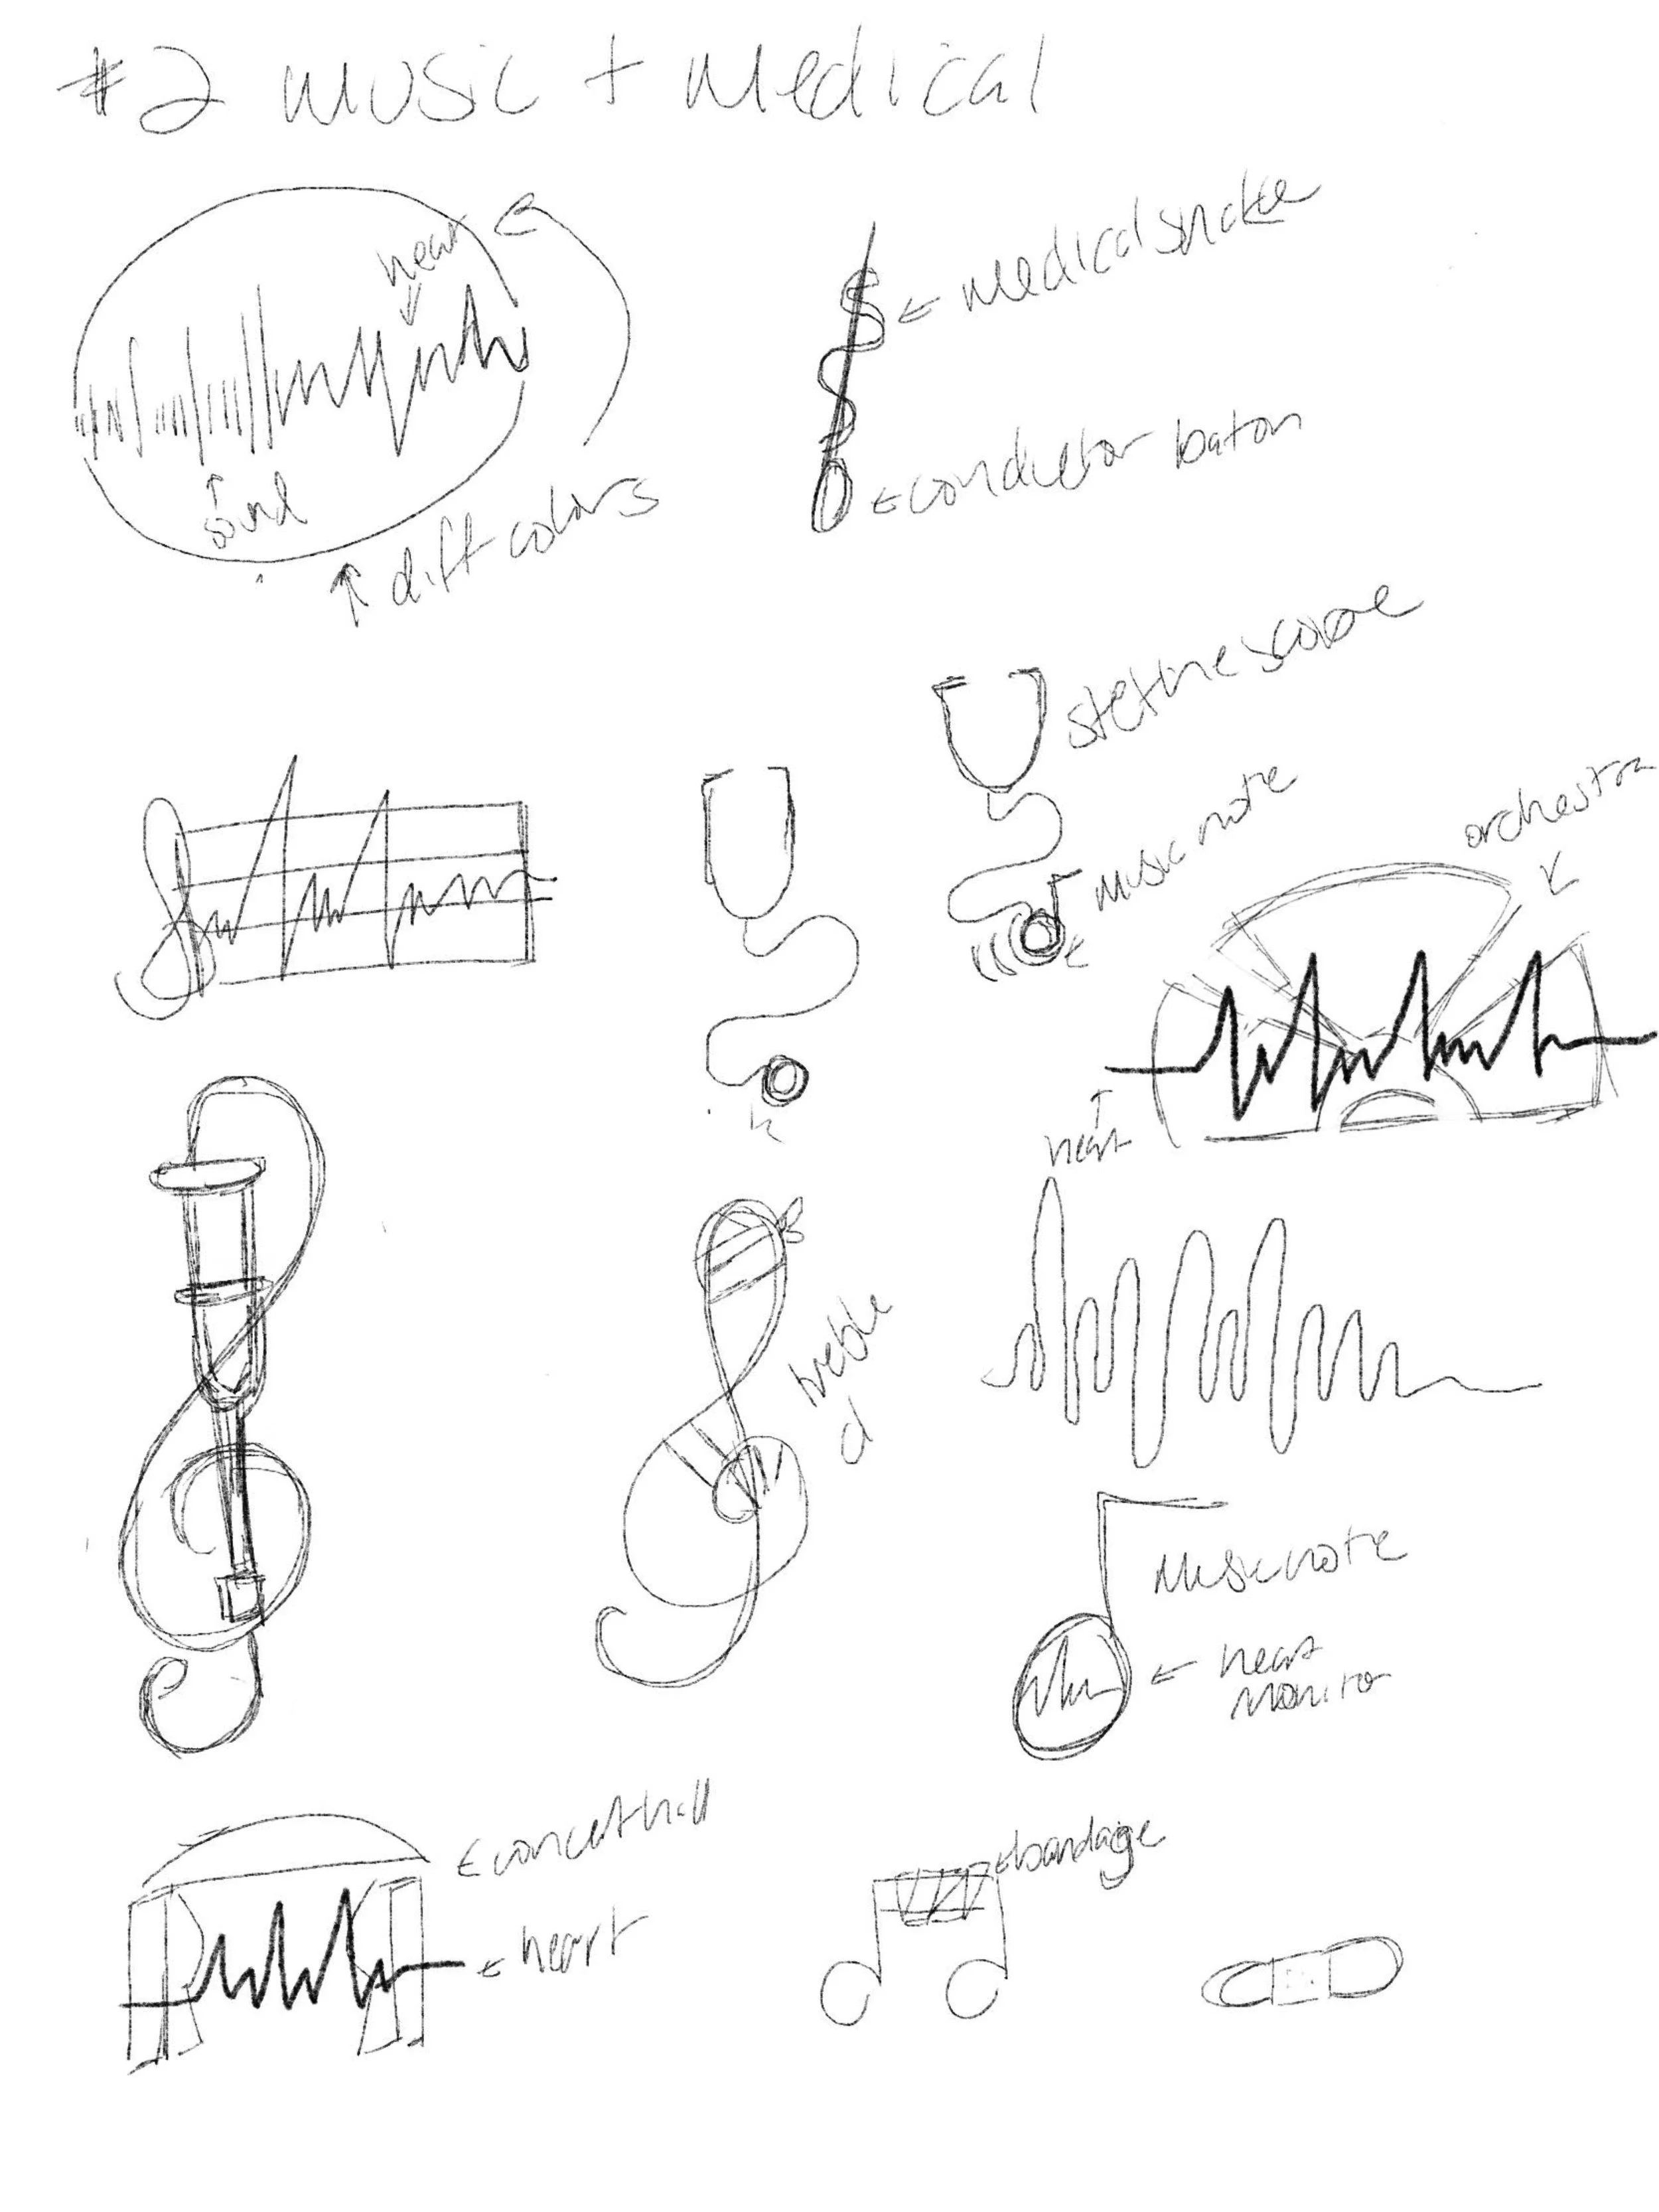 #2 Music + Medical
heart
sound
diff colors
medical snake
conductor baton
stethescope
music note
orchestra
heart
treble
Music note
heart
monitor
concert hall
heart
bandage